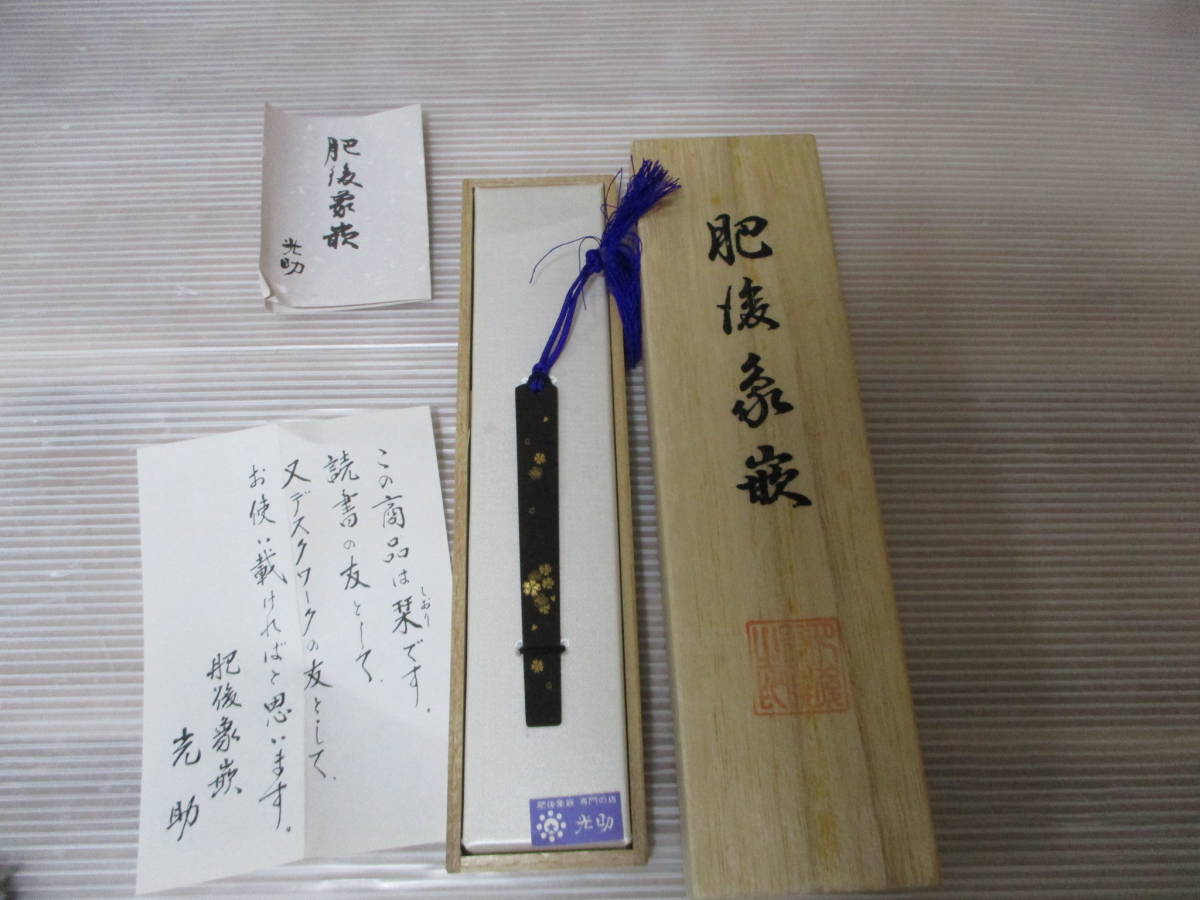 肥後象嵌
光助
肥後象嵌
この商品は栞です。
しおり
読書の友として、
又デスクワークの友として、
お使い載ければと思います。
肥後象嵌
光助
肥後象嵌 専門の店
光助